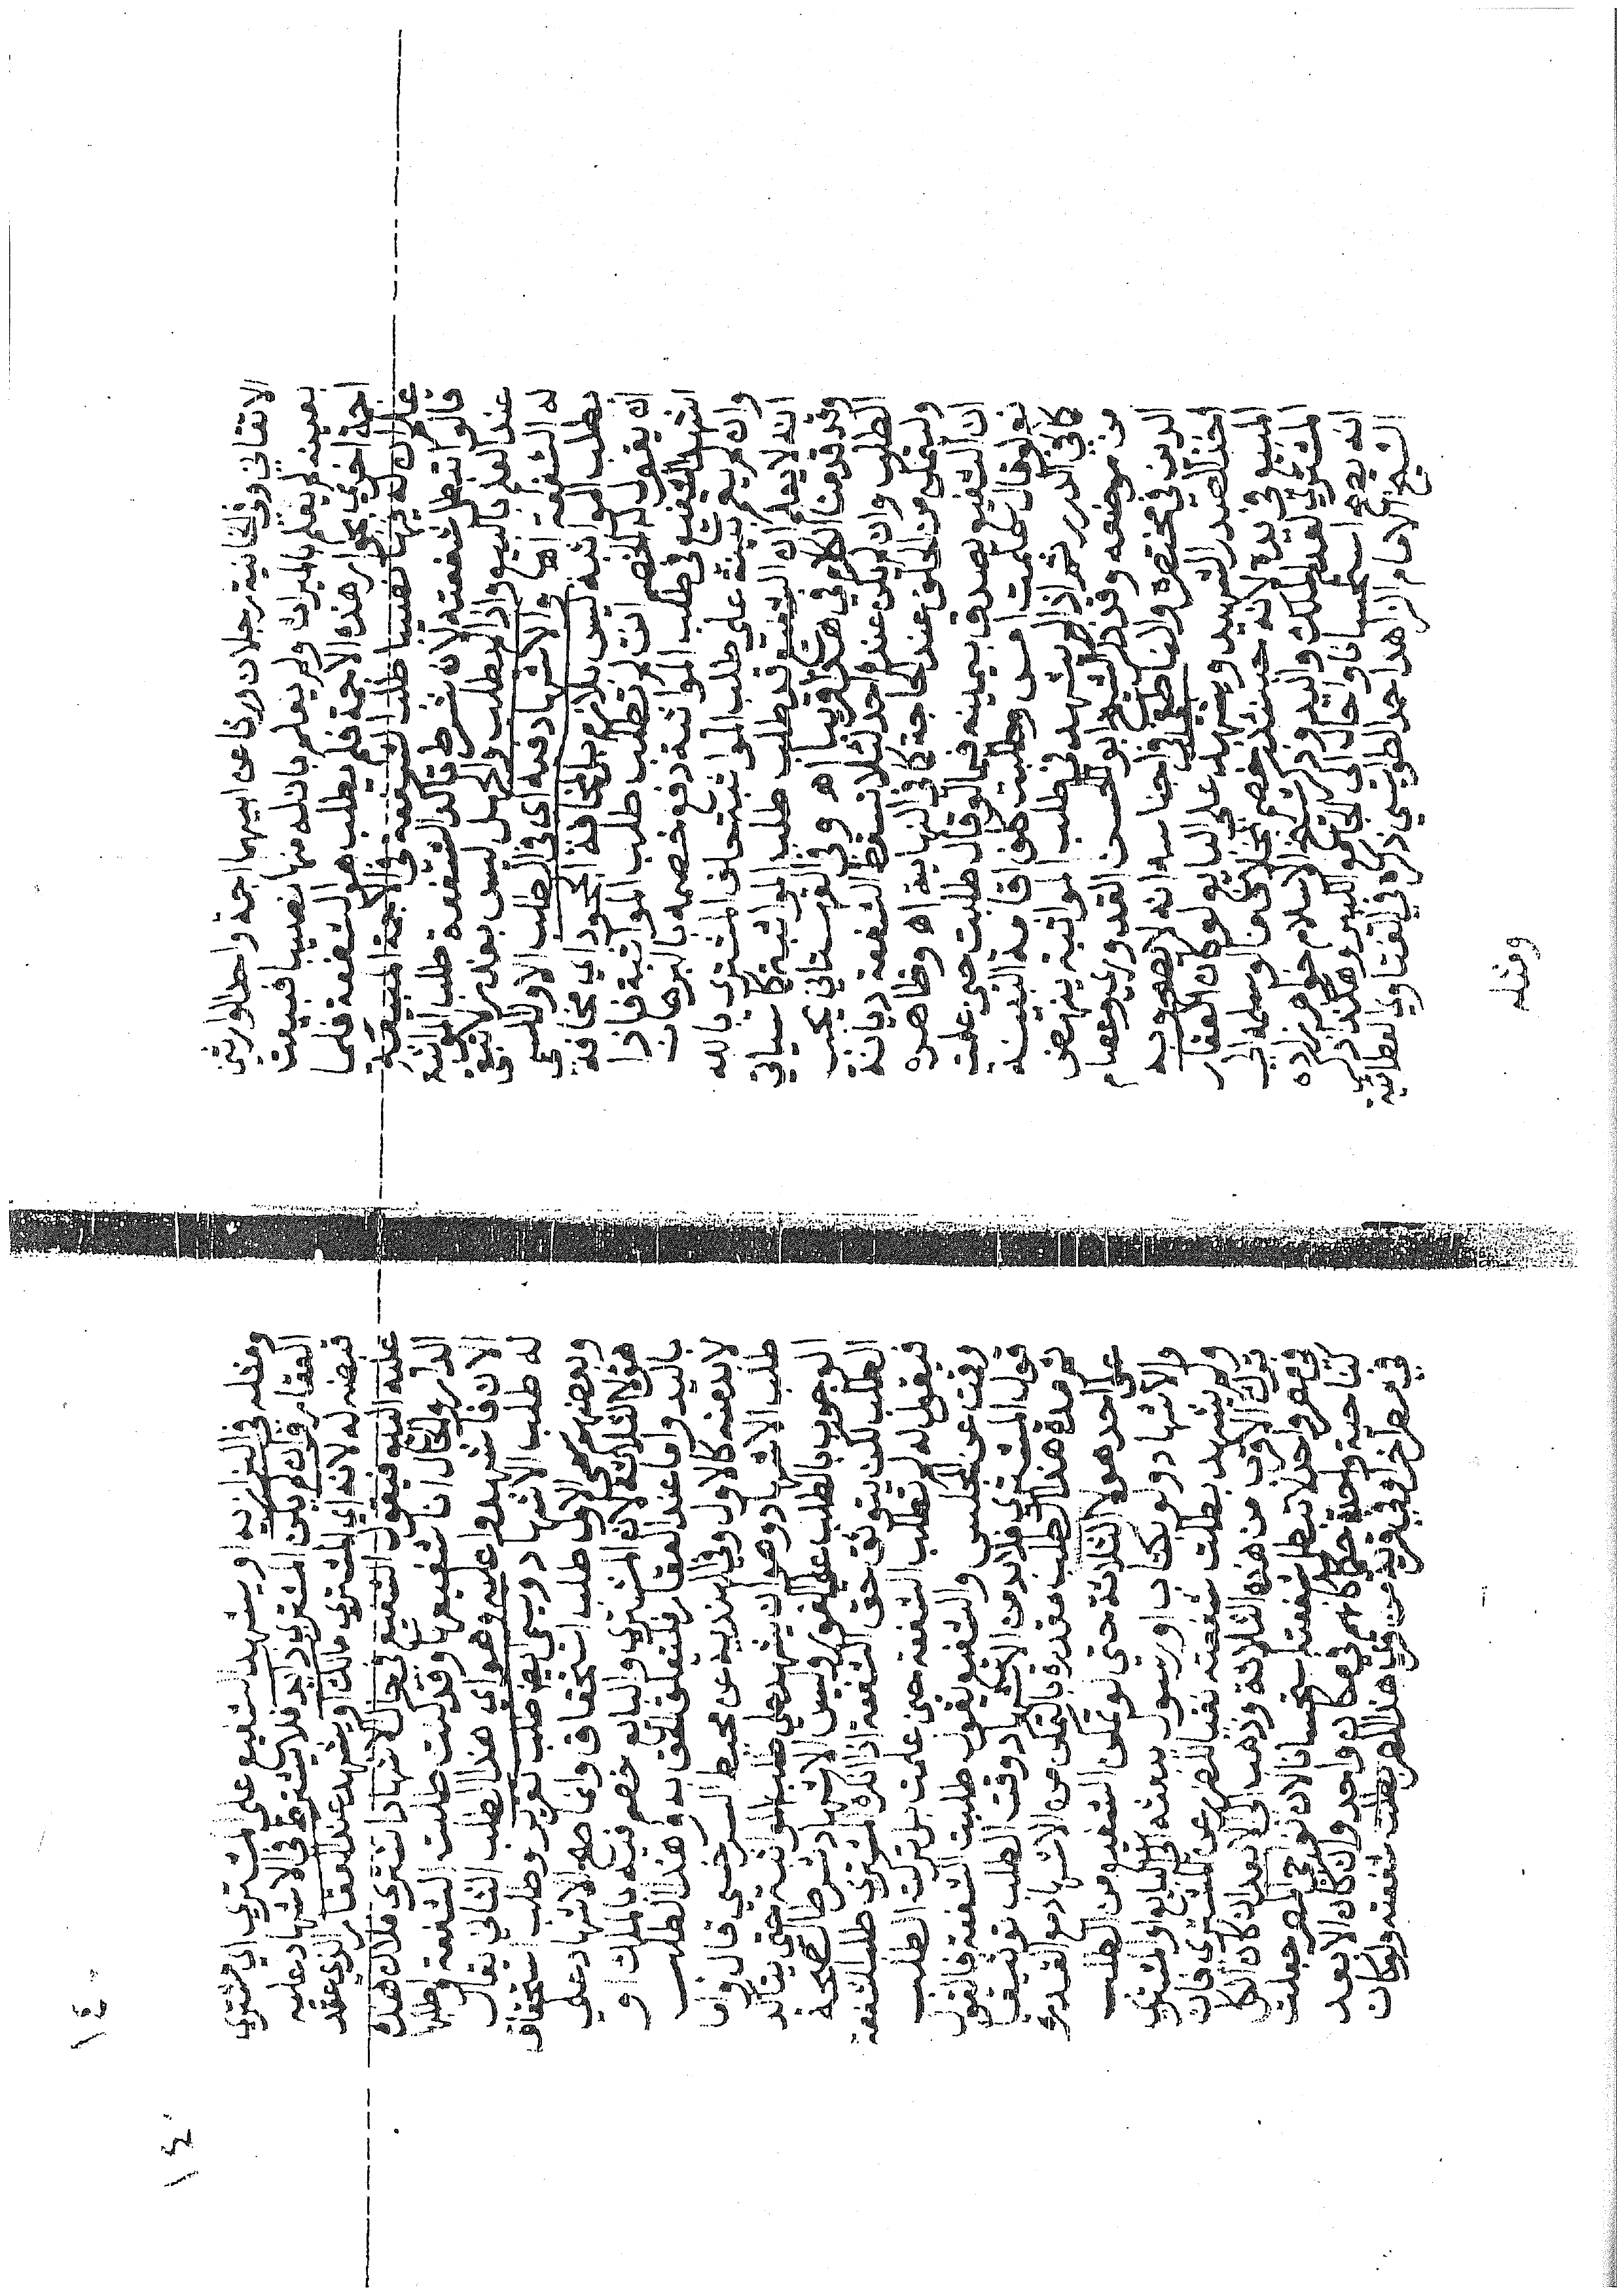 الاتقاني وفي الخانية رجلان ورثا عن ابيهما اجمة واحد الوارثين
بعينه لم يعلم بالميراث ولم يعلم بان له منها نصيبا فبيعت
اجمة اخرى بجوار هذه الاجمة فلم يطلب هو الشفعة فلما
علم ان له فيها نصيبا طلب الشفعة في الاجمة المبيعة
قالوا تبطل شفعته لان شرط تاكد الشفعة طلب المواثبة
عند العلم بالبيع واذا لم يطلب والجهل ليس بعذر لا تبقى
له الشفعة اه والاشهاد فيه اي في الطلب الاول المسمى
بطلب المواثبة ليس بلازم بل لمخافة الجحود اي مخافة
ان يقول له الخصم انت لم تطلب طلب المواثبة فاذا
اشهد الشفيع في طلب المواثبة دفع خصمه بالبرهان
وان لم يقم بينة على طلب المواثبة حلف المشتري بالله
انه لا يعلم ان الشفيع قد طلب طلب المواثبة كما سياتي
وقد قدمنا الكلام في هذا قريبا اه وفي القهستاني يجب
الطلب وان لم يكن عنده احد لئلا تسقط الشفعة ديانة
وليتمكن من الحلف عند الحاجة كما في النهاية اه وظاهره
ان الشفيع يصدق بيمينه فيما لو قال طلبت حين علمت
نعم لو قال علمت امس وطلبت كلف اقامة البينة
كما في الدرر ثم اذا لم يشهد في طلب المواثبة ينهض
من موضعه وقد ذكر الشيخ ابو الحسن القدوري وعصام
الدين في مختصره والناطفي واجناسه انه لا يصح وبه
اخذ الصدر الشهيد ويشهد على البايع لو كان العقار
المبيع في يده لانه حينئذ خصم بخلاف ما لو سلمه الى
المشتري لعدم الملك واليد وذكر شيخ الاسلام خواهر زاده
انه يصح استحسانا واحال الى الجامع الكبير وهكذا ذكر
الشيخ الامام الزاهد احمد الطواويسي ذكره في الفتاوى الظهيرية
ومثله
ومثله في البزازية او يشهد الشفيع على المشتري اي مشتري
العقار وان لم يكن المشتري ذا يد فلا يشترط في الاشهاد عليه
قبضه له لانه اي المشتري مالك او يشهد عند العقار الذي عقد
عليه البيع فيقول الشفيع في حال الاشهاد اشترى فلان هذه
الدار والحال انا شفيعها وقد كنت طلبت الشفعة واطلبها
الان فاشهدوا عليه وهو اي هذا الطلب الثاني يقال
له طلب الاشهاد ويسمى ايضا طلب تقرير وطلب استحقاق
وبعضهم سمى الاول طلب استحقاق وانما صح الاشهاد على
هؤلاء الثلاثة لان المشتري والبايع خصم فيه بالملك او
باليد واما عند العقار فلتعلق الحق به وهذا الطلب
لا بد منه كالاول وفي الهندية عن محيط السرخسي قال واما
طلب الاشهاد وهو ان يشهد على طلب المواثبة حتى يتاكد
الوجوب بالطلب على الفور وليس الاشهاد شرطا لصحة
الطلب لكن يتوثق حق الشفعة اذا انكر المشتري طلب الشفعة
فيقول له لم تطلب الشفعة حين علمت بل تركت الطلب
وقمت عن المجلس والشفيع يقول طلبت الشفعة فالقول
قول المشتري فلا بد من الاشهاد وقت الطلب توثيقا
ثم مدة هذا الطلب مقدرة بالتمكن من الاشهاد مع القدرة
على احد هؤلاء الثلاثة حتى لو تمكن الشفيع من الطلب
والاشهاد ولو بكتاب او رسول يبعثه الى البايع او المشتري
ولم يشهد بطلت شفعته نفيا للضرر عن المشتري فان
ترك الاقرب من هذه الثلاثة وذهب الى الابعد ان كان الكل
في مصر واحد لا تبطل شفعته استحسانا لان نواحي المصر جعلت
كناحية واحدة حكما كانهم في مكان واحد وان كان الابعد
في مصر اخر او في قرية من قرى هذا المصر بطلت شفعته ولو كان
١٤
١٤